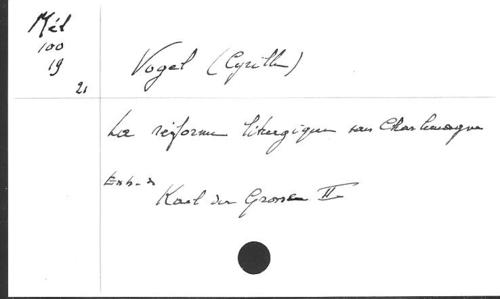 Mél
100
19
21
Vogel (Cyrille)
La réforme liturgique sous Charlemagne
Karl der Grosse II